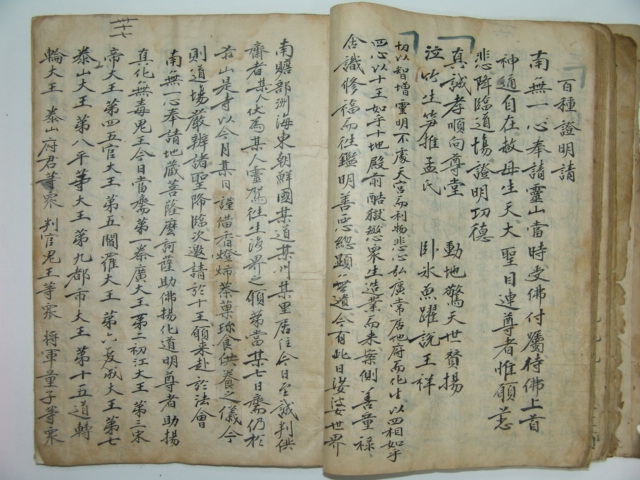 百種證明請
南無一心奉請靈山當時受佛付囑待佛上首
神通自在救母生天大聖目連尊者惟願慈
悲降臨道場證明功德
真誠孝順向尊堂 動地驚天世贊揚
泣竹生笋推孟氏 卧氷魚躍說王祥
切以智增靈明不處天宮而利物悲心弘廣常居地府而化生以四相如乎
四心以十王如乎十地殿前酷獄愍衆生造業而來案側善童祿
含識修祿而往鑑明善惡總顯無遺今有此日娑婆世界
南贍部洲海東朝鮮國某道某州某里居住今日至誠判供
齋者某人伏為某人靈駕往生淨界之願當某日齋仍於
某山是寺以今月某日謹備香燈婦茶菓珎食供養之儀今
則道場嚴辦諸聖降臨次邀請於十王願來赴於法會
南無一心奉請地藏菩薩摩訶薩助佛揚化道明尊者助揚
真化無毒鬼王今日當齋第一秦廣大王第二初江大王第三宋
帝大王第四五官大王第五閻羅大王第六變成大王第七
泰山大王第八平等大王第九都市大王第十五道轉
輪大王 泰山府君等衆 判官鬼王等衆 將軍童子等衆